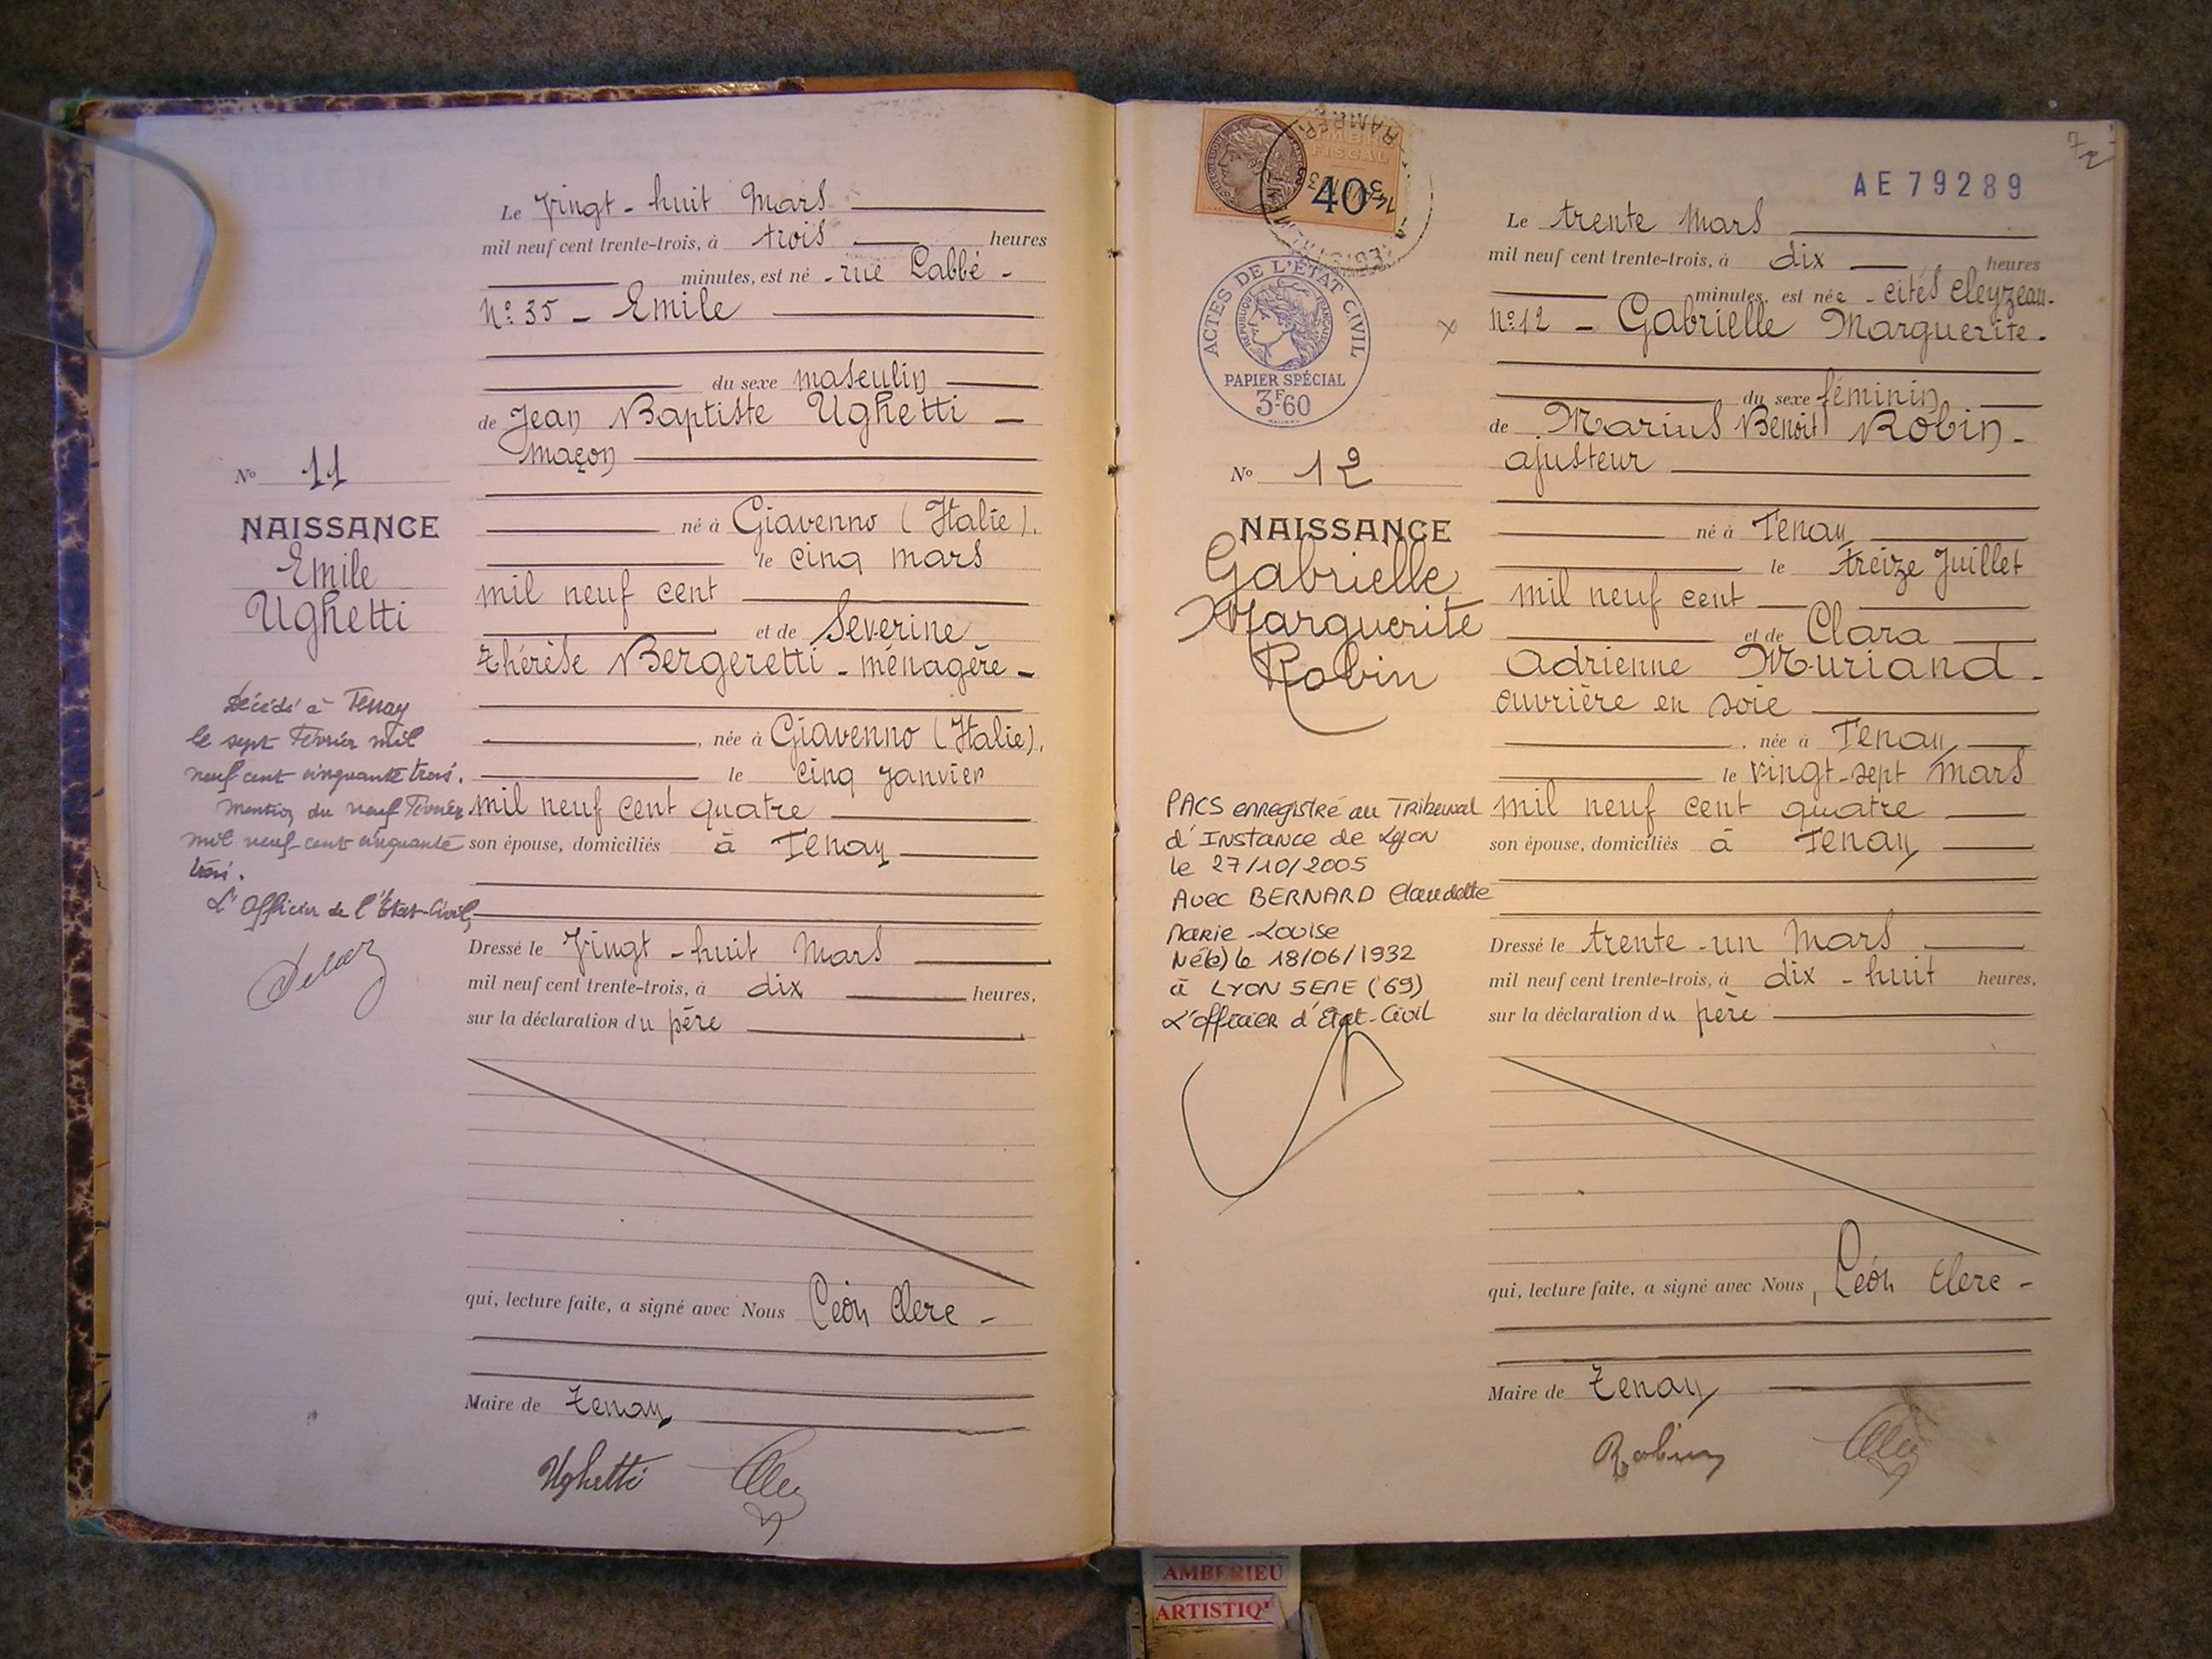 Le Vingt-huit Mars
mil neuf cent trente-trois, à trois heures
minutes, est né - rue Labbé -
N° 35 - Emile
du sexe masculin
de Jean Baptiste Ughetti -
maçon
né à Giavenno (Italie).
le cinq mars
mil neuf cent
et de Séverine
Thérèse Bergeretti - ménagère -
, née à Giavenno (Italie),
le cinq Janvier
mil neuf cent quatre
son épouse, domiciliés à Tenay
Dressé le Vingt-huit Mars
mil neuf cent trente-trois, à dix heures,
sur la déclaration du père
qui, lecture faite, a signé avec Nous Léon Clerc -
Maire de Tenay
Ughetti
N° 11
NAISSANCE
Emile
Ughetti
Décédé à Tenay
le sept Février mil
neuf cent cinquante trois.
Mention du neuf Février
mil neuf cent cinquante
trois.
L'Officier de l'État-Civil,
TIMBRE
FISCAL
40
ACTES DE L'ÉTAT CIVIL
RÉPUBLIQUE FRANÇAISE
PAPIER SPÉCIAL
3F60
AE79289
Le trente Mars
mil neuf cent trente-trois, à dix heures
minutes, est née - cités Cleyzeau -
N° 12 - Gabrielle Marguerite -
du sexe féminin
de Marius Benoit Robin -
ajusteur
né à Tenay
le treize Juillet
mil neuf cent
et de Clara
Adrienne Muriand -
ouvrière en soie
, née à Tenay
le vingt-sept Mars
mil neuf cent quatre
son épouse, domiciliés à Tenay
Dressé le trente-un Mars
mil neuf cent trente-trois, à dix-huit heures,
sur la déclaration du père
qui, lecture faite, a signé avec Nous, Léon Clerc -
Maire de Tenay
Robin
N° 12
NAISSANCE
Gabrielle
Marguerite
Robin
PACS enregistré au Tribunal
d'Instance de Lyon
le 27/10/2005
Avec BERNARD Claudette
Marie-Louise
Né(e) le 18/06/1932
à LYON 5EME (69)
L'Officier d'État-Civil
AMBERIEU
ARTISTIQ